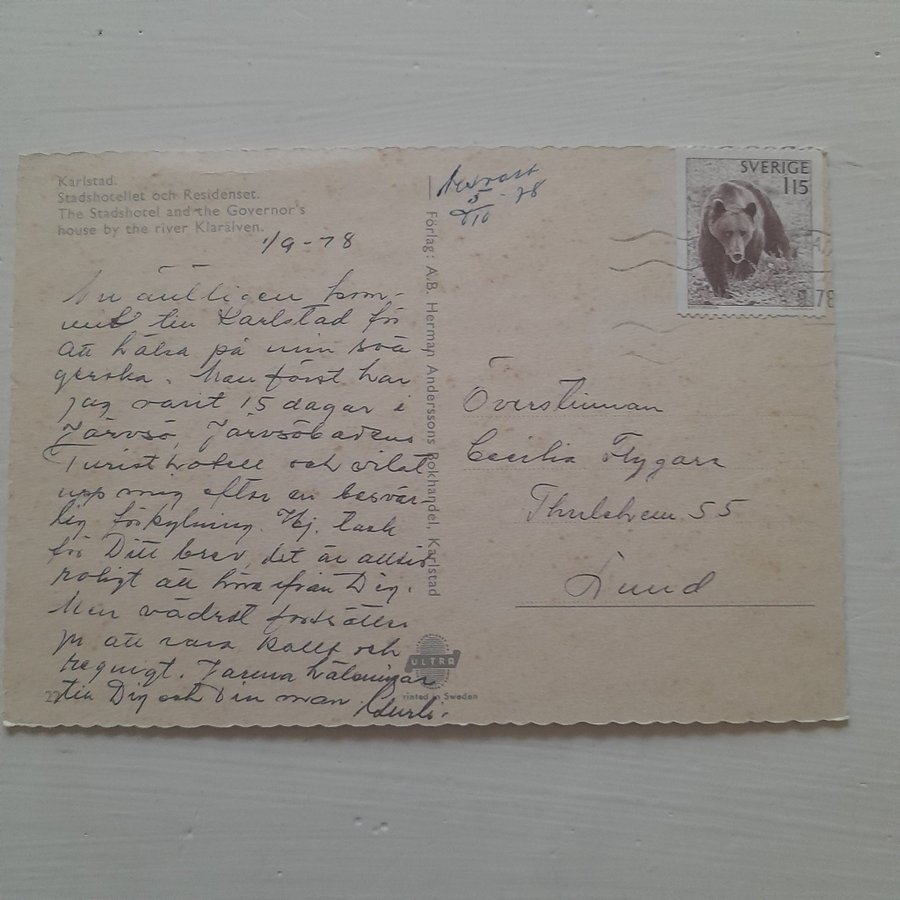 Karlstad.
Stadshotellet och Residenset.
The Stadshotel and the Governor's
house by the river Klarälven.
1/9-78
Nu äntligen kom-
mit till Karlstad för
att hälsa på min svä-
gerska. Men först har
jag varit 15 dagar i
Järvsö, Järvsöbadens
Turisthotell och vilat
upp mig efter en besvär-
lig förkylning. Hej, tack
för Ditt brev, det är alltid
roligt att höra ifrån Dig.
Men vädret fortsätter
ju att vara kallt och
regnigt. Varma hälsningar
till Dig och Din man
Förlag: A.B. Herman Anderssons Bokhandel, Karlstad
ULTRA
Printed in Sweden
5/10-78
SVERIGE
115
Överstinnan
Cecilia Flygare
55
Lund